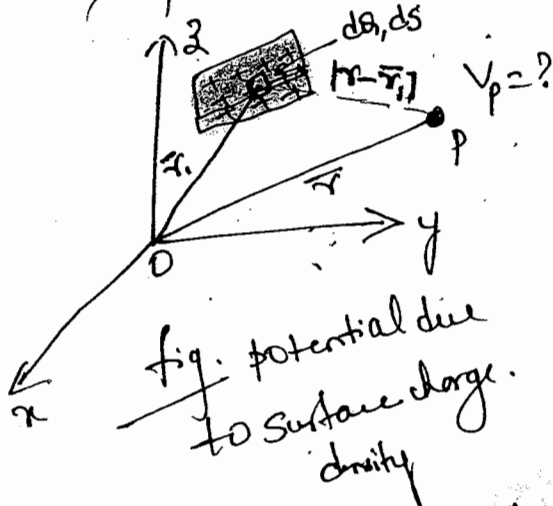 z
dQ, ds
|r̄-r̄₁|
V_p=?
P
r̄₁
r̄
y
O
x
fig. potential due
to surface charge.
density